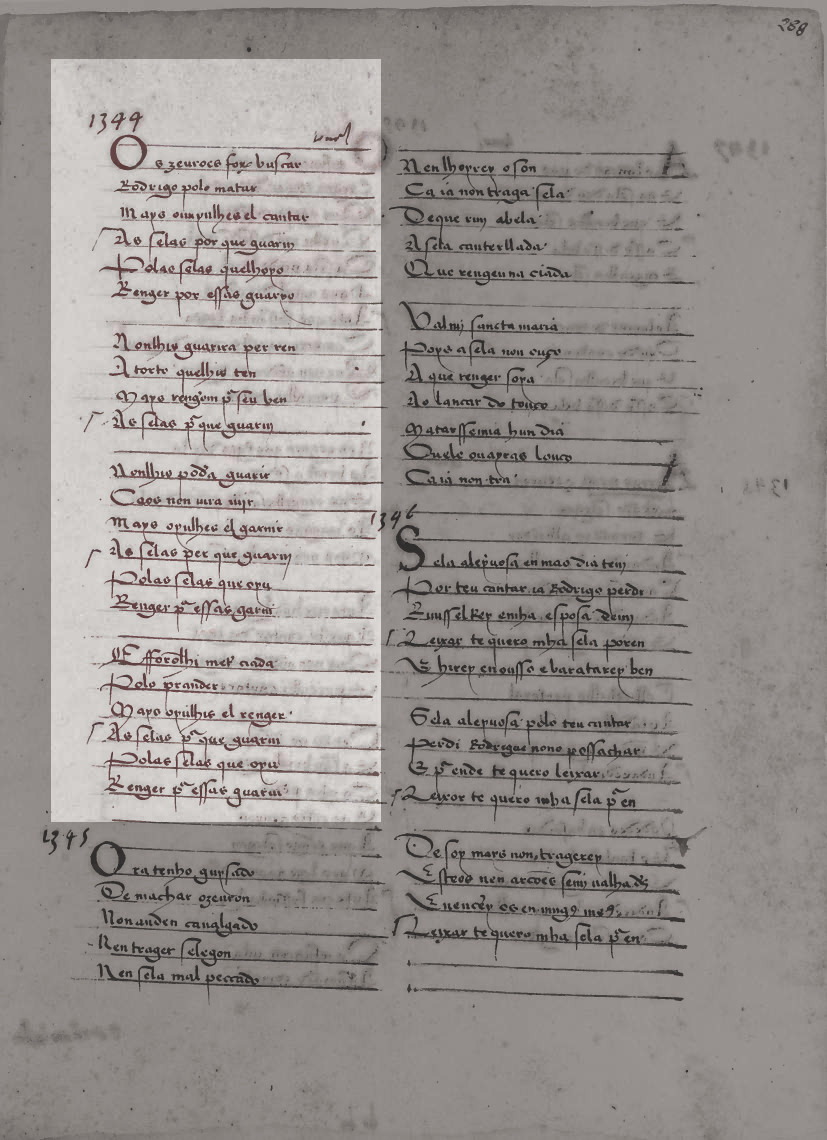 288
1344
Os zeuroes foy buscar
Rodrigo polo matar
Mays ouuyulhes el cantar
As selas por que guarin
Polas selas quelhoyo
Renger por essas guaryo
Nonlhis guarira per ren
A torto quelhis ten
Mays rengom pr seu ben
As selas pr que guarin
Nonlhis podia guarir
Caos non uira
Mays oyulhes el garnir
As selas per que guarin
Polas selas que oyu
Renger pr essas garni
E fforolhi ciada
Polo prander
Mays oyulhis el renger
As selas pr que guarin
Polas selas que oyu
Renger pr essas guarni
1345
Ora tenho guysado
De machar ozeuron
Non anden caualgado
Nen trager selegon
Nen sela mal peccado
Nen lhoyrey o son
Ca ia non traga sela
De que rim abela
A sela canterllada
Que rengeu na ciada
Valmi sancta maria
Poys a sela non ouço
A que renger soya
Ao lancar do touço
Matarssemia hun dia
Ouele ouayras louco
Ca ia non tra
1346
Sela aleyuosa en mao dia teui
Por teu cantar ia Rodrigo perdi
Riiussel Rey emha esposa deui
Leixar te quero mha sela poren
E hirey en ousso e baratarey ben
Sela aleyuosa polo teu cantar
Perdi Rodrigue nono possachar
E pr ende te quero leixar
Leixar te quero mha sela pr en
De soy mays non tragerey
Esteos nen arções semi ualha ds
E uencer os en
Leixar te quero mha sela pr en